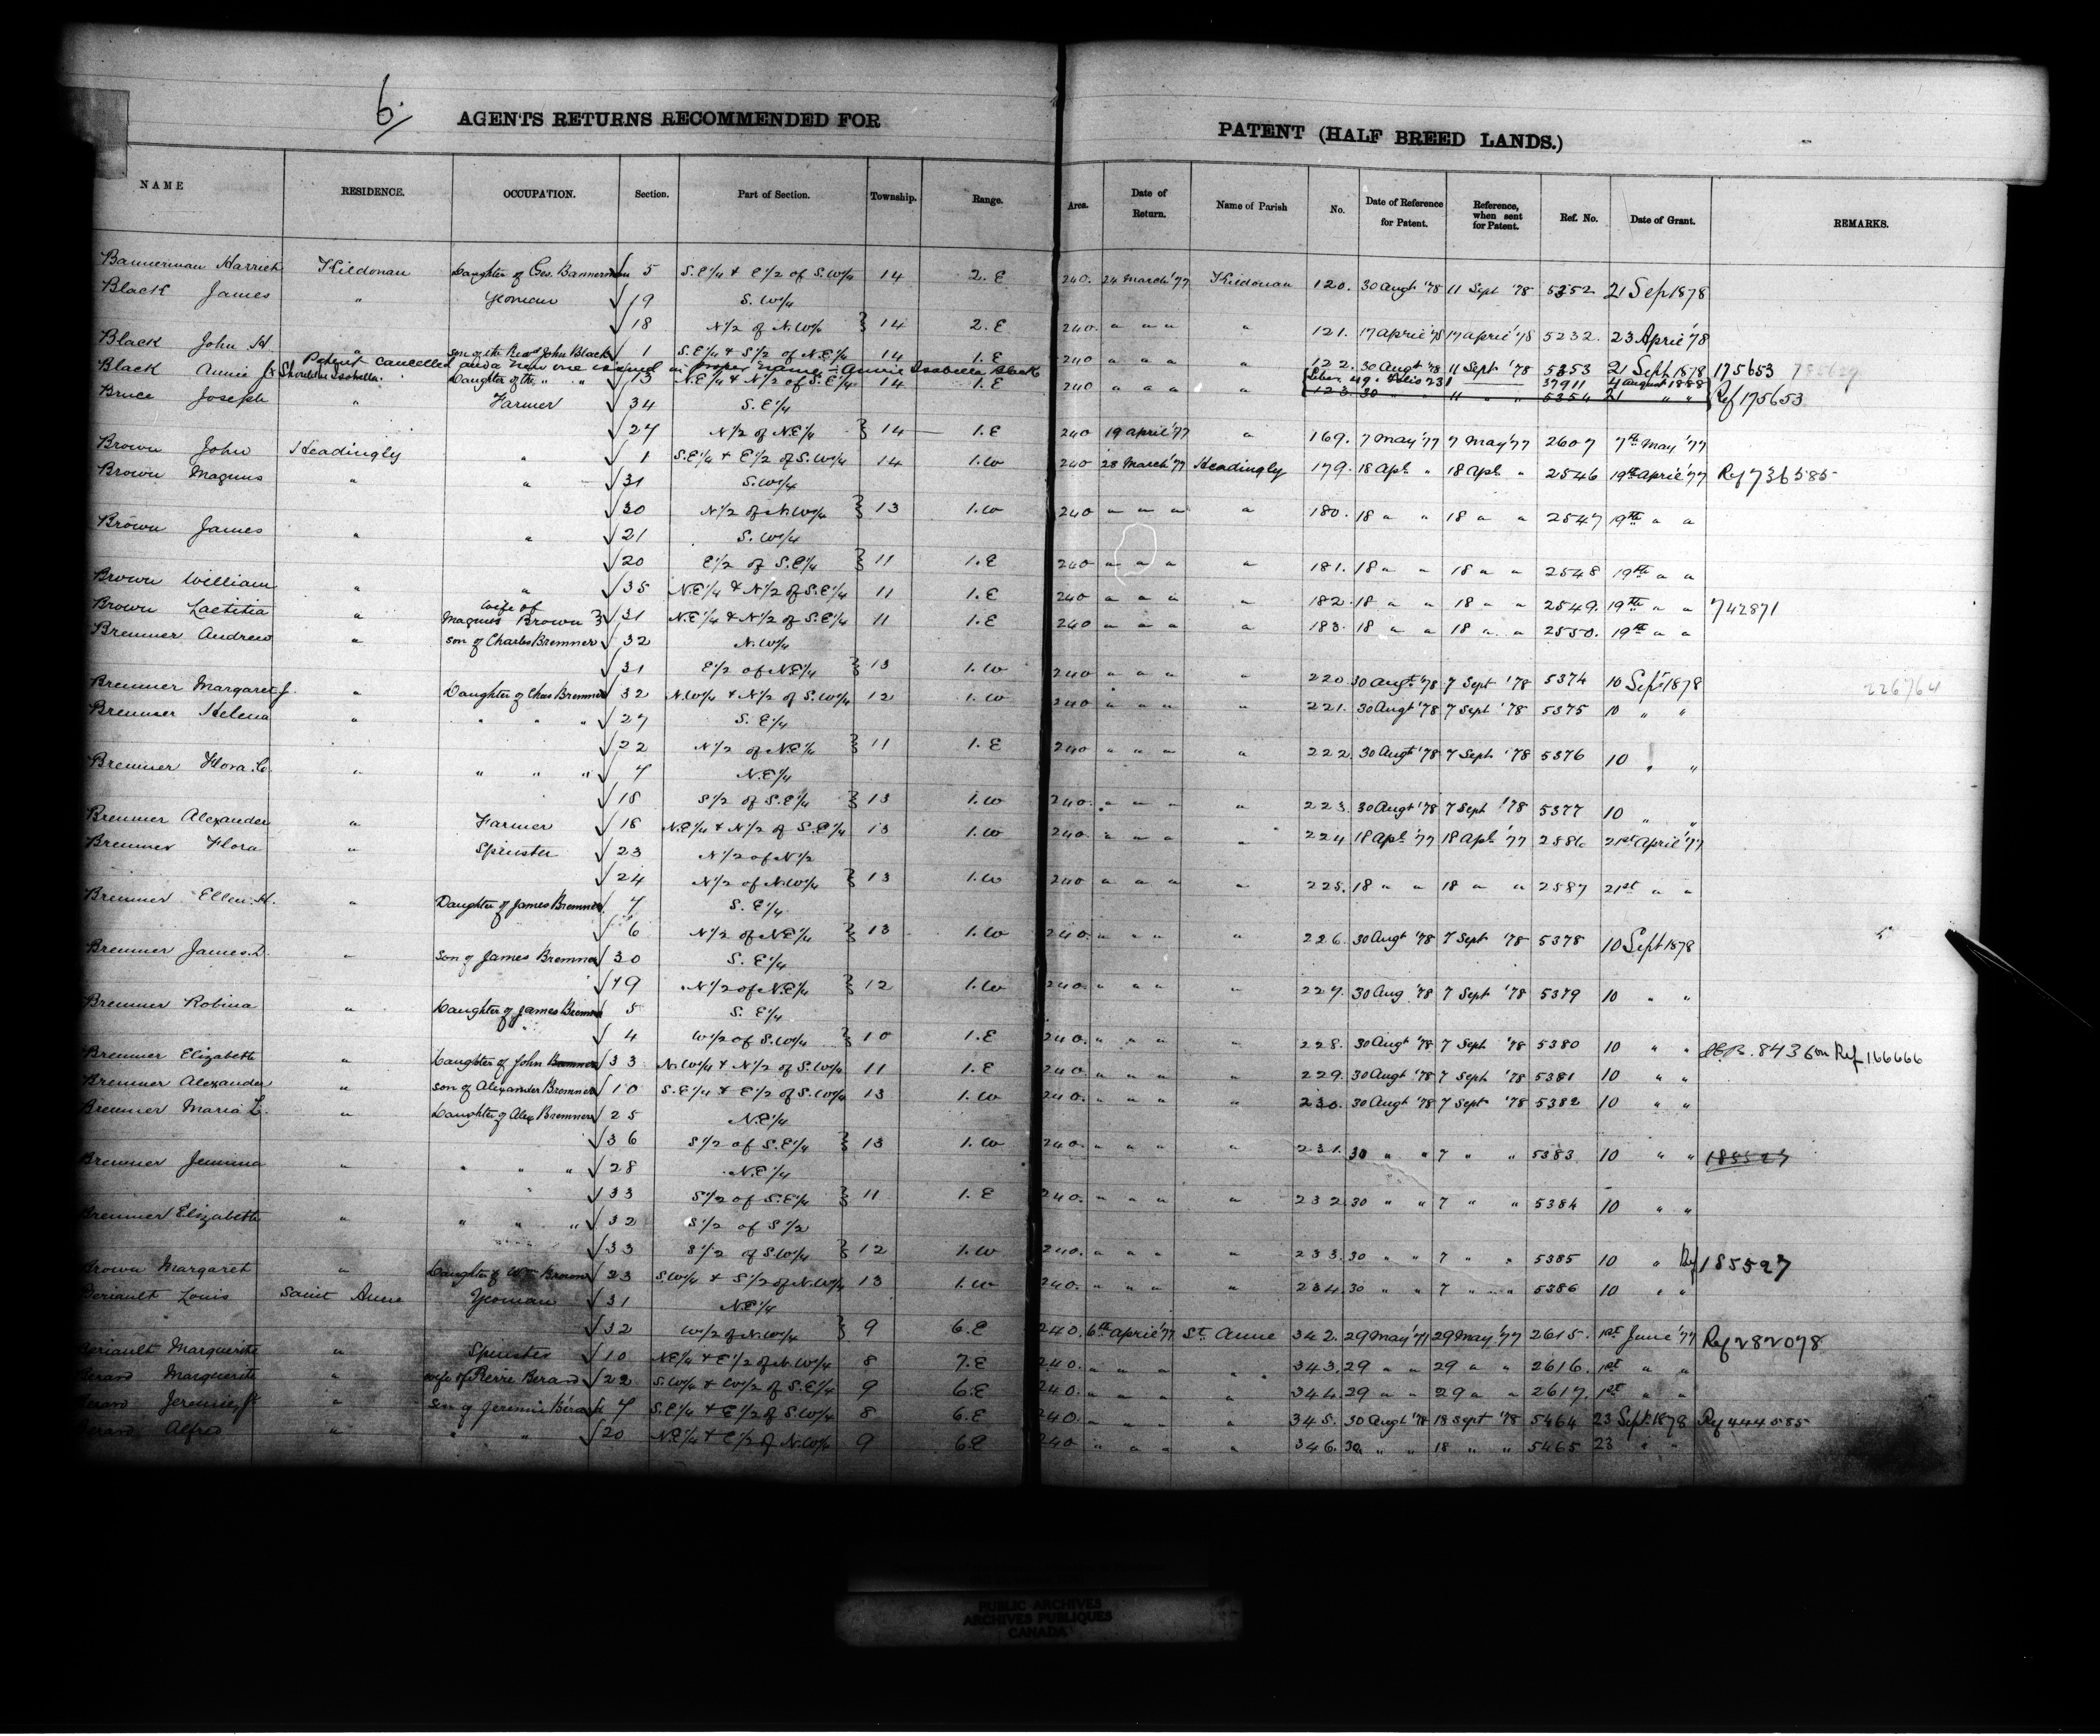 6.
AGENTS RETURNS RECOMMENDED FOR PATENT (HALF BREED LANDS.)
NAME RESIDENCE. OCCUPATION. Section. Part of Section. Township. Range. Area. Date of Return. Name of Parish No. Date of Reference for Patent. Reference, when sent for Patent. Ref. No. Date of Grant. REMARKS.
Bannerman Harriet Kildonan Daughter of Geo. Bannerman √ 5 S.E1/4 & E1/2 of S.W1/4 14 2.E 240. 24 March '77 Kildonan 120. 30 Augt '78 11 Sept '78 5352 21 Sep 1878
Black James " Yeoman √19 S.W1/4
√18 N1/2 of N.W1/4 } 14 2.E 240. " " " " 121. 17 April '78 17 April '78 5232. 23 April '78
Black John H " son of the Revd John Black √ 1 S.E1/4 & S1/2 of N.E1/4 14 1.E 240 " " " " 122. 30 Augt '78 11 Sept '78 5353 21 Sept 1878 175653
Patent cancelled and a new one issued in proper name - Annie Isabella Black
Liber 49. Folio 231 37911 4 August 1888
Black Annie Isabella. Daughter of the " " √13 N.E1/4 & N1/2 of S.E1/4 14 1.E 240 " " " " 123. 30 " " 11 " " 5354 21 " " Ref 175653
Bruce Joseph " Farmer √34 S.E1/4
√27 N1/2 of N.E1/4 } 14 1.E 240 19 April '77 " 169. 7 May '77 7 May '77 2607 7th May '77
Brown John Headingly " √ 1 S.E1/4 & E1/2 of S.W1/4 14 1.W 240 28 March '77 Headingly 179. 18 Apl. " 18 Apl " 2546 19th April '77 Ref 736585
Brown Magnus " " √31 S.W1/4
√30 N1/2 of N.W1/4 } 13 1.W 240 " " " " 180. 18 " " 18 " " 2547 19th " "
Brown James " " √21 S.W1/4
√20 E1/2 of S.E1/4 } 11 1.E 240 " " " " 181. 18 " " 18 " " 2548 19th " "
Brown William " " √35 N.E1/4 & N1/2 of S.E1/4 11 1.E 240 " " " " 182. 18 " " 18 " " 2549. 19th " " 742871
Brown Laetitia " wife of Magnus Brown } √31 N.E1/4 & N1/2 of S.E1/4 11 1.E 240 " " " " 183. 18 " " 18 " " 2550. 19th " "
Bremner Andrew " son of Charles Bremner √32 N.W1/4
√31 E1/2 of N.E1/4 } 13 1.W 240 " " " " 220. 30 Augt '78 7 Sept '78 5374 10 Sept 1878
226764
Bremner Margaret J. " Daughter of Chas Bremner √32 N.W1/4 & N1/2 of S.W1/4 12 1.W 240 " " " " 221. 30 Augt '78 7 Sept '78 5375 10 " "
Bremner Helena " " " " √27 S.E1/4
√22 N1/2 of N.E1/4 } 11 1.E 240 " " " " 222. 30 Augt '78 7 Sept '78 5376 10 " "
Bremner Flora C. " " " " √ 7 N.E1/4
√18 S1/2 of S.E1/4 } 13 1.W 240. " " " " 223. 30 Augt '78 7 Sept '78 5377 10 " "
Bremner Alexander " Farmer √18 N.E1/4 & N1/2 of S.E1/4 13 1.W 240. " " " " 224 18 Apl. '77 18 Apl. '77 2586 21st April '77
Bremner Flora " Spinster √23 N1/2 of N1/2
√24 N1/2 of N.W1/4 } 13 1.W 240 " " " " 225. 18 " " 18 " " 2587 21st " "
Bremner Ellen H. " Daughter of James Bremner √ 7 S.E1/4
√ 6 N1/2 of N.E1/4 } 13 1.W 240. " " " " 226. 30 Augt '78 7 Sept '78 5378 10 Sept 1878
Bremner James D. " son of James Bremner √30 S.E1/4
√19 N1/2 of N.E1/4 } 12 1.W 240. " " " " 227. 30 Aug '78 7 Sept '78 5379 10 " "
Bremner Robina " Daughter of James Bremner √ 5 S.E1/4
√ 4 W1/2 of S.W1/4 } 10 1.E 240. " " " " 228. 30 Augt '78 7 Sept '78 5380 10 " " 8436 on Ref 166666
Bremner Elizabeth " Daughter of John Bremner √33 N.W1/4 & N1/2 of S.W1/4 11 1.E 240 " " " " 229. 30 Augt '78 7 Sept '78 5381 10 " "
Bremner Alexander " son of Alexander Bremner √10 S.E1/4 & E1/2 of S.W1/4 13 1.W 240. " " " " 230. 30 Augt '78 7 Sept '78 5382 10 " "
Bremner Maria " Daughter of Alex Bremner √25 N.E1/4
√36 S1/2 of S.E1/4 } 13 1.W 240. " " " " 231. 30 " " 7 " " 5383 10 " " 185527
Bremner Jemima " " " " √28 N.E1/4
√33 S1/2 of S.E1/4 } 11 1.E 240. " " " " 232. 30 " " 7 " " 5384 10 " "
Bremner Elizabeth " " " " √32 S1/2 of S1/2
√33 S1/2 of S.W1/4 } 12 1.W 240. " " " " 233. 30 " " 7 " " 5385 10 " Ref 185527
Brown Margaret " Daughter of Wm Brown √23 S.W1/4 & S1/2 of N.W1/4 13 1.W 240. " " " " 234. 30 " " 7 " " 5386 10 " "
Beriault Louis Saint Anne Yeoman √31 N.E1/4
√32 W1/2 of N.W1/4 } 9 6.E 240. 6th April '77 St. Anne 342. 29 May '77 29 May '77 2615. 1st June '77 Ref 282078
Beriault Marguerite " Spinster √10 N.E1/4 & E1/2 of N.W1/4 8 7.E 240. " " " " 343. 29 " " 29 " " 2616. 1st " "
Berard Marguerite " wife of Pierre Berard √22 S.W1/4 & W1/2 of S.E1/4 9 6.E 240. " " " " 344. 29 " " 29 " " 2617. 1st " "
Berard Jeremie Jr " son of Jeremie Bérard √ 7 S.E1/4 & E1/2 of S.W1/4 8 6.E 240. " " " " 345. 30 Augt '78 18 Sept '78 5464 23 Sept 1878 Ref 444585
Berard Alfred " " " √20 N.E1/4 & E1/2 of N.W1/4 9 6.E 240 " " " " 346. 30 " " 18 " " 5465 23 " "
PUBLIC ARCHIVES
ARCHIVES PUBLIQUES
CANADA